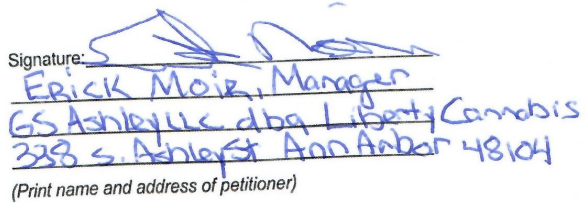 Signature:
Erick Moir, Manager
GS Ashley LLC dba Liberty Cannabis
338 S. Ashley St Ann Arbor 48104
(Print name and address of petitioner)